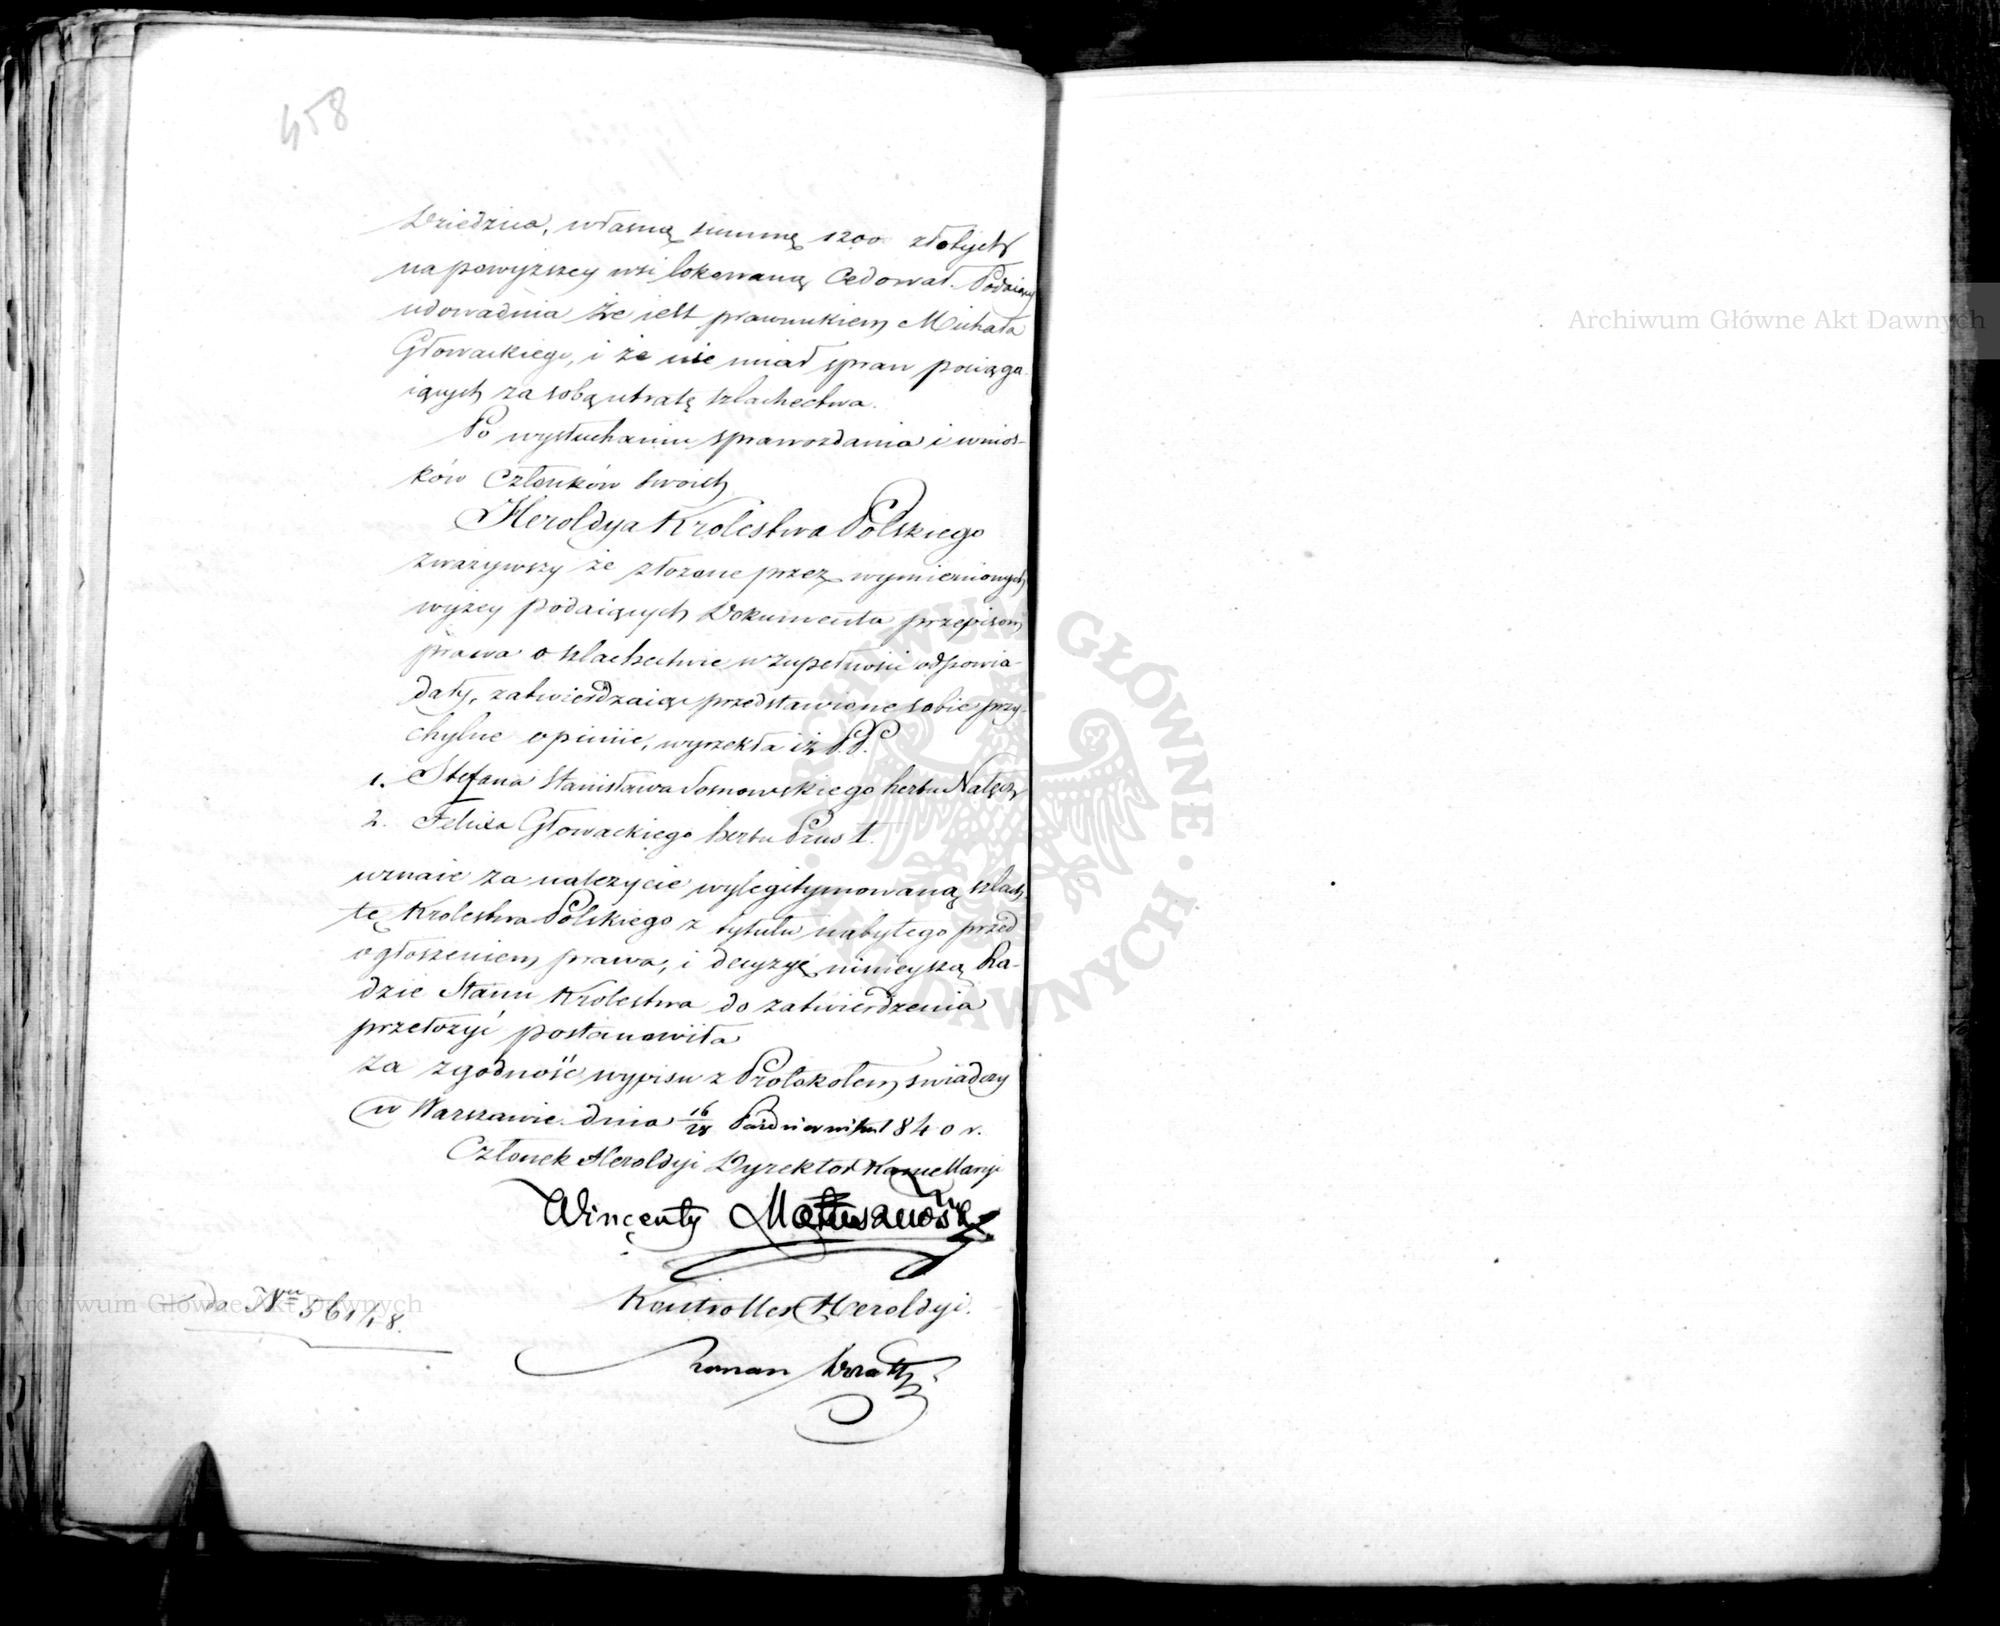 458
Dziedzica, własną summę 1200 złotych
na powyższey wsi lokowaną cedował. Podaiący
udowadnia że iest prawnukiem Michała
Głowackiego, i że nie miał spraw pociąga-
iących za sobą utratę szlachectwa.
Po wysłuchaniu sprawozdania i wnios-
ków Członków swoich
Heroldya Krolestwa Polskiego
zważywszy że złożone przez wymienionych
wyżey podaiących Dokumenta przepisom
prawa o szlachectwie w zupełności odpowia-
dały, zatwierdzaiąc przedstawione sobie przy-
chylne opinije, wyrzekła iż P.P.
1. Stefana Stanisława Sosnowskiego herbu Nałęcz
2. Felixa Głowackiego herbu Prus I.
uznaie za należycie wylegitymowaną szlach-
tę Krolestwa Polskiego z tytułu nabytego przed
ogłoszeniem prawa, i decyzyę ninieyszą Ra-
dzie Stanu Krolestwa do zatwierdzenia
przełożyć postanowiła
Za zgodność wypisu z Protokołem świadczy
w Warszawie dnia 16/28 Października 1840 r.
Członek Heroldyi Dyrektor Kancellaryi
Wincenty
Kontroller Heroldyi.
Roman
do Nru
Archiwum Główne Akt Dawnych
Archiwum Główne Akt Dawnych
ARCHIWUM GŁÓWNE AKT DAWNYCH